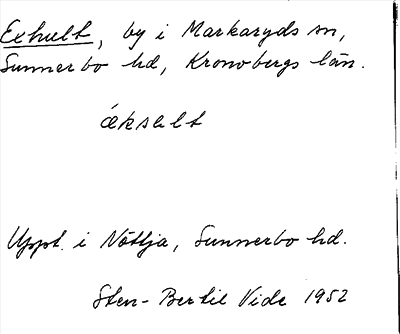 Exhult, by i Markaryds sn,
Sunnerbo hd, Kronobergs län.
ækslt
Uppt. i Nöttja, Sunnerbo hd.
Sten-Bertil Vide 1952